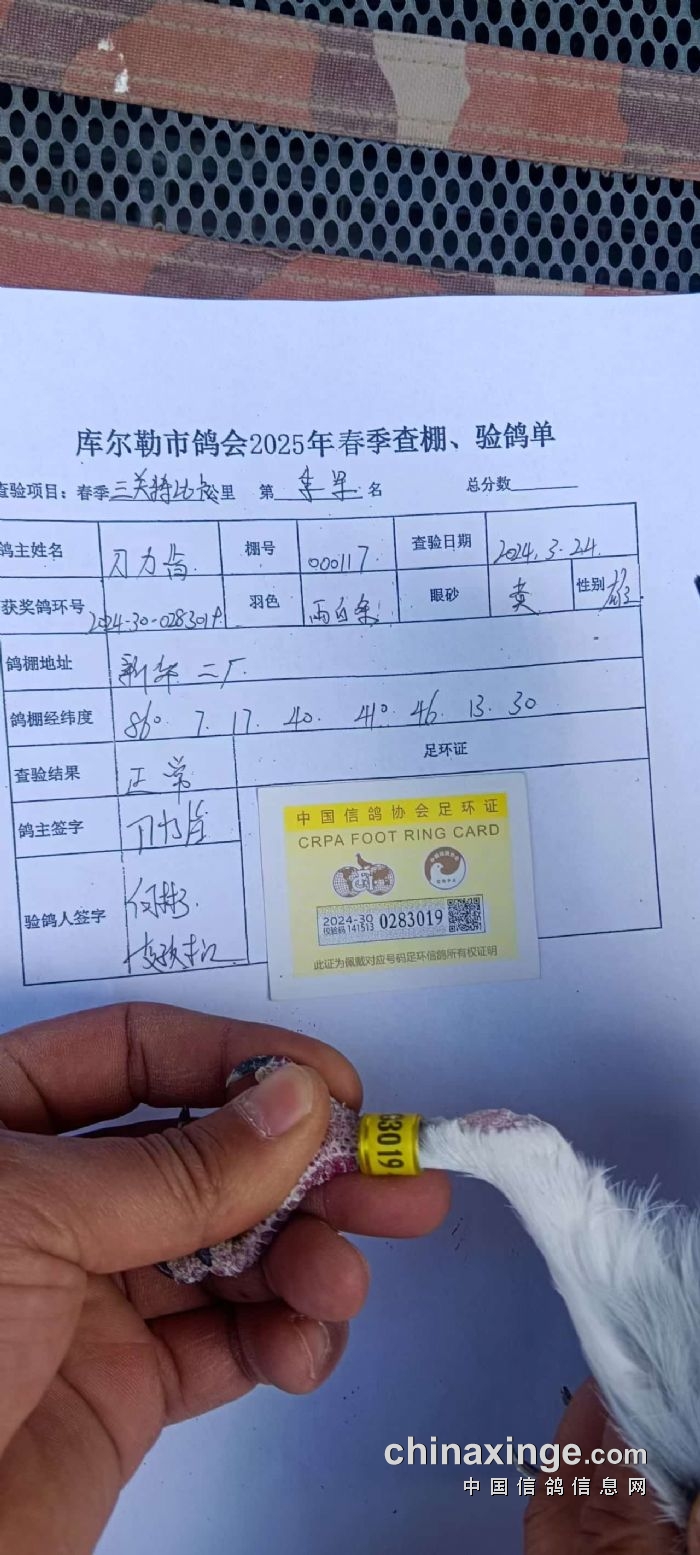 库尔勒市鸽会2025年春季查棚、验鸽单
查验项目：春季三关特比 公里 第 季军 名 总分数
鸽主姓名 刁力 棚号 000117. 查验日期 2024.3.24.
获奖鸽环号 2024-30-0283019. 羽色 雨白条 眼砂 黄 性别
鸽棚地址 新华二厂.
鸽棚经纬度 86° 7. 17. 40. 41° 46. 13. 30
查验结果 正常 足环证
鸽主签字
验鸽人签字
中国信鸽协会足环证
CRPA FOOT RING CARD
2024-30
校验码 141513 0283019
此证为佩戴对应号码足环信鸽所有权证明
83019
chinaxinge.com
中国信鸽信息网